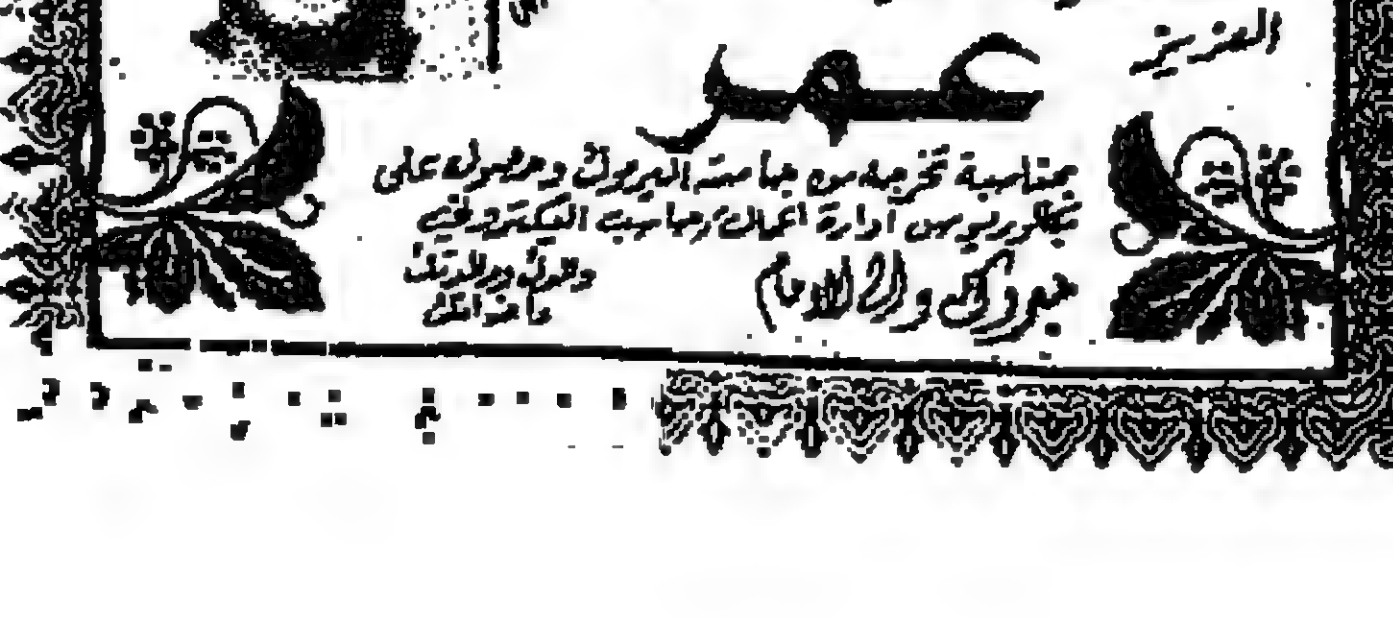 العزيز
عمر
بمناسبة تخرجه من جامعة اليرموك وحصوله على
بكالوريوس ادارة اعمال وحاسب الكتروني
مبروك والى الامام
والدك ووالدتك
واخوانك